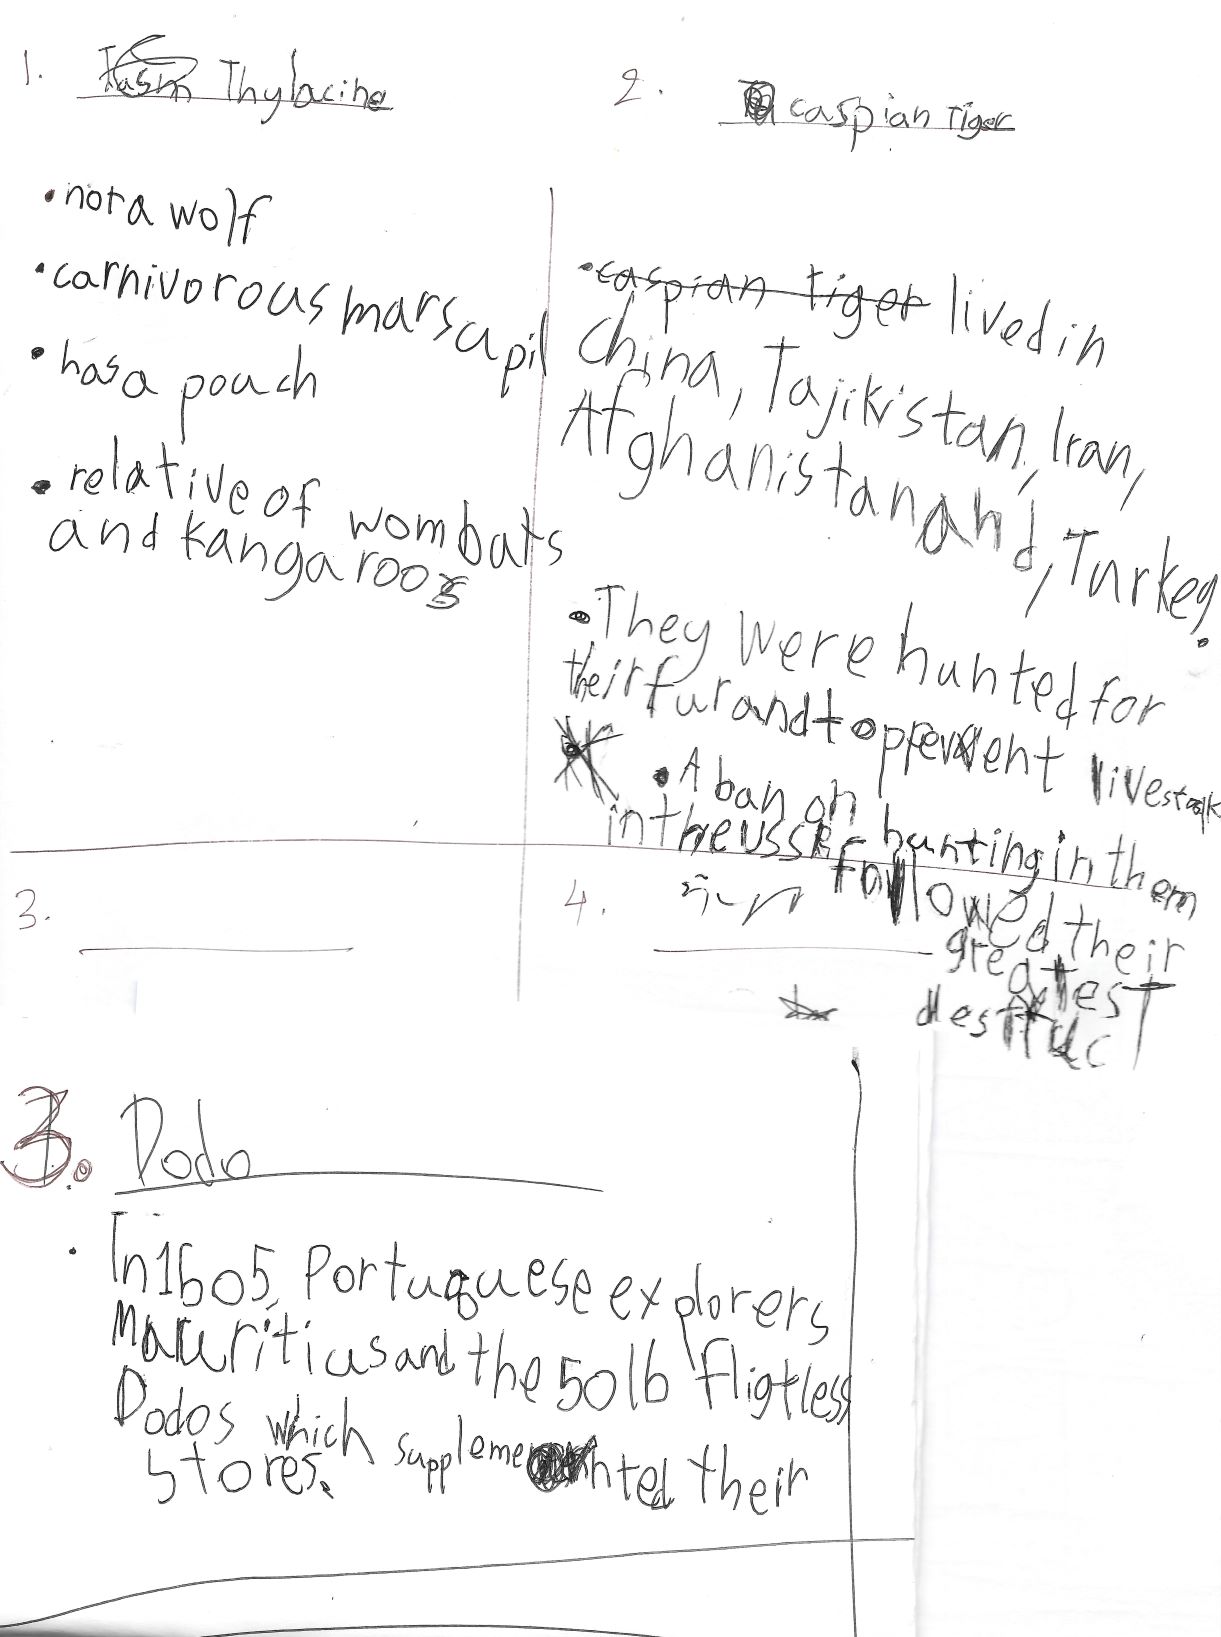 1. Thylacine
• not a wolf
• carnivorous marsupil
• has a pouch
• relative of wombats
and kangaroos
2. caspian Tiger
• caspian tiger lived in
China, Tajikistan, Iran,
Afghanistan and, Turkey.
• They were hunted for
their fur and to prevent livestock
• A ban on hunting in them
in the ussr followed their
greatest
destruc
3.
4.
3. Dodo
• In 1605, Portuguese explorers
Mauritius and the 50 lb fligtless
Dodos which supplemented their
stores.